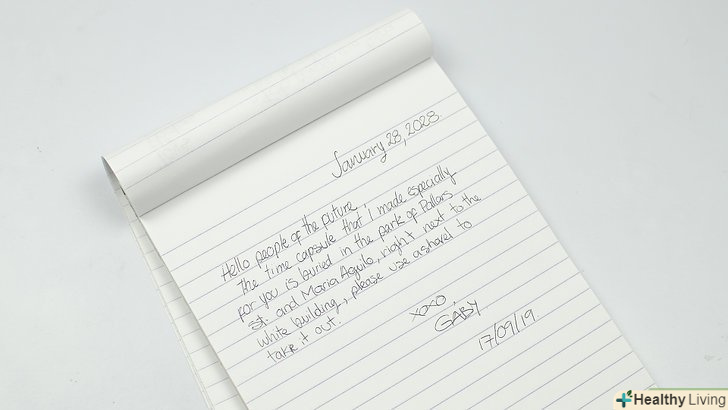 January 28, 2028.
Hello people of the future,
the time capsule that I made especially
for you is buried in the park of Pallars
st. and Maria Aguilo, right next to the
white building, please use a shovel to
take it out.
xoxo,
GABY
17/09/19.
Healthy Living